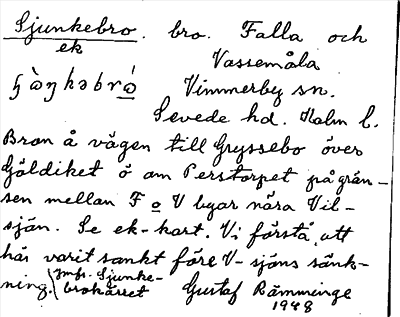 Sjunkebro. bro. Falla och
ek
Vassemåla
ɧə̀ŋkəbrό̲ Vimmerby sn.
Sevede hd. Kalm l.
Bron å vägen till Gryssebo över
Göldiket ö om Perstorpet på grän-
sen mellan F o V byar nära Vil-
sjön. Se ek-kart. Vi förstå, att
här varit sankt före V-sjöns sänk-
ning. (Jmfr. Sjunke-
brokärret Gustaf Rämminge
1948